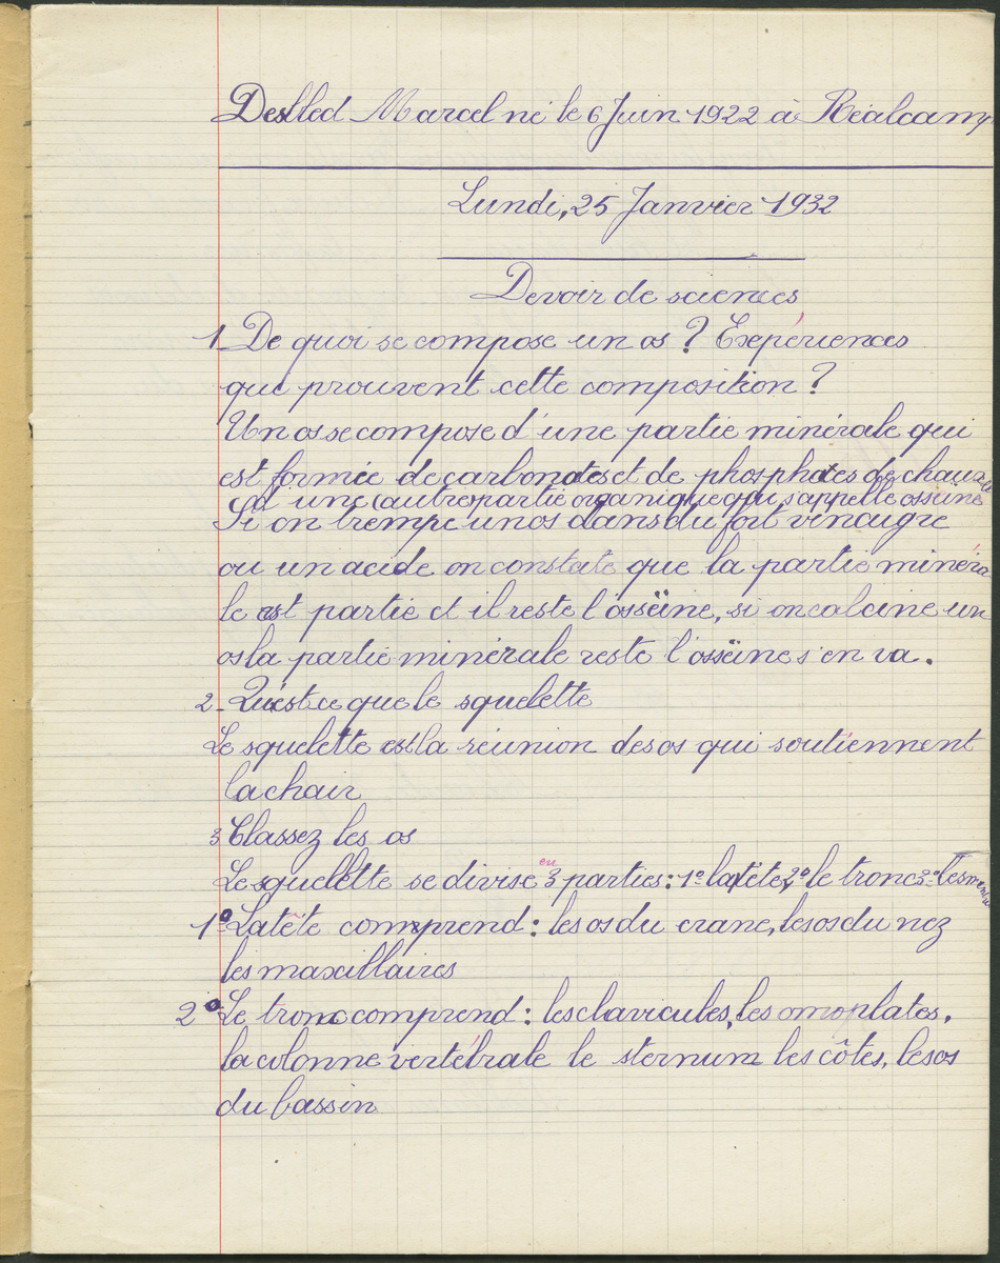 Marcel né le 6 Juin 1922 à Réalcamp
Lundi, 25 Janvier 1932
Devoir de sciences
1 De quoi se compose un os ? Expériences
qui prouvent cette composition ?
Un os se compose d'une partie minérale qui
est formée de carbonates et de phosphates de chaux
d'une autre partie organique qui s'appelle osséine
Si on trempe un os dans du fort vinaigre
ou un acide on constate que la partie minéra
le est partie et il reste l'osséïne, si on calcine un
os la partie minérale reste l'osséïne s'en va.
2- Qu'est ce que le squelette
Le squelette est la réunion des os qui soutiennent
la chair
3 Classez les os
Le squelette se divise en 3 parties : 1º la tête, 2º le tronc 3º les membres
1º La tête comprend : les os du crane, les os du nez
les maxillaires
2º Le tronc comprend : les clavicules, les omoplates,
la colonne vertébrale le sternum les côtes, les os
du bassin